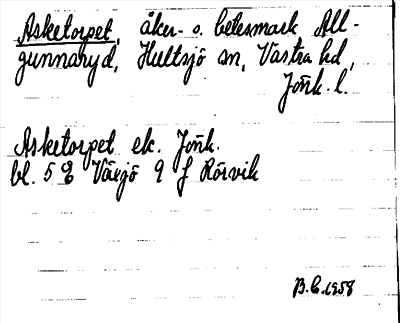 Asketorpet, åker- o. betesmark All-
gunnaryd, Hultsjö sn, Västra hd,
Jönk. l.
Asketorpet ek. Jönk.
bl. 5 E Växjö 9 f Rörvik
B.C. 1958